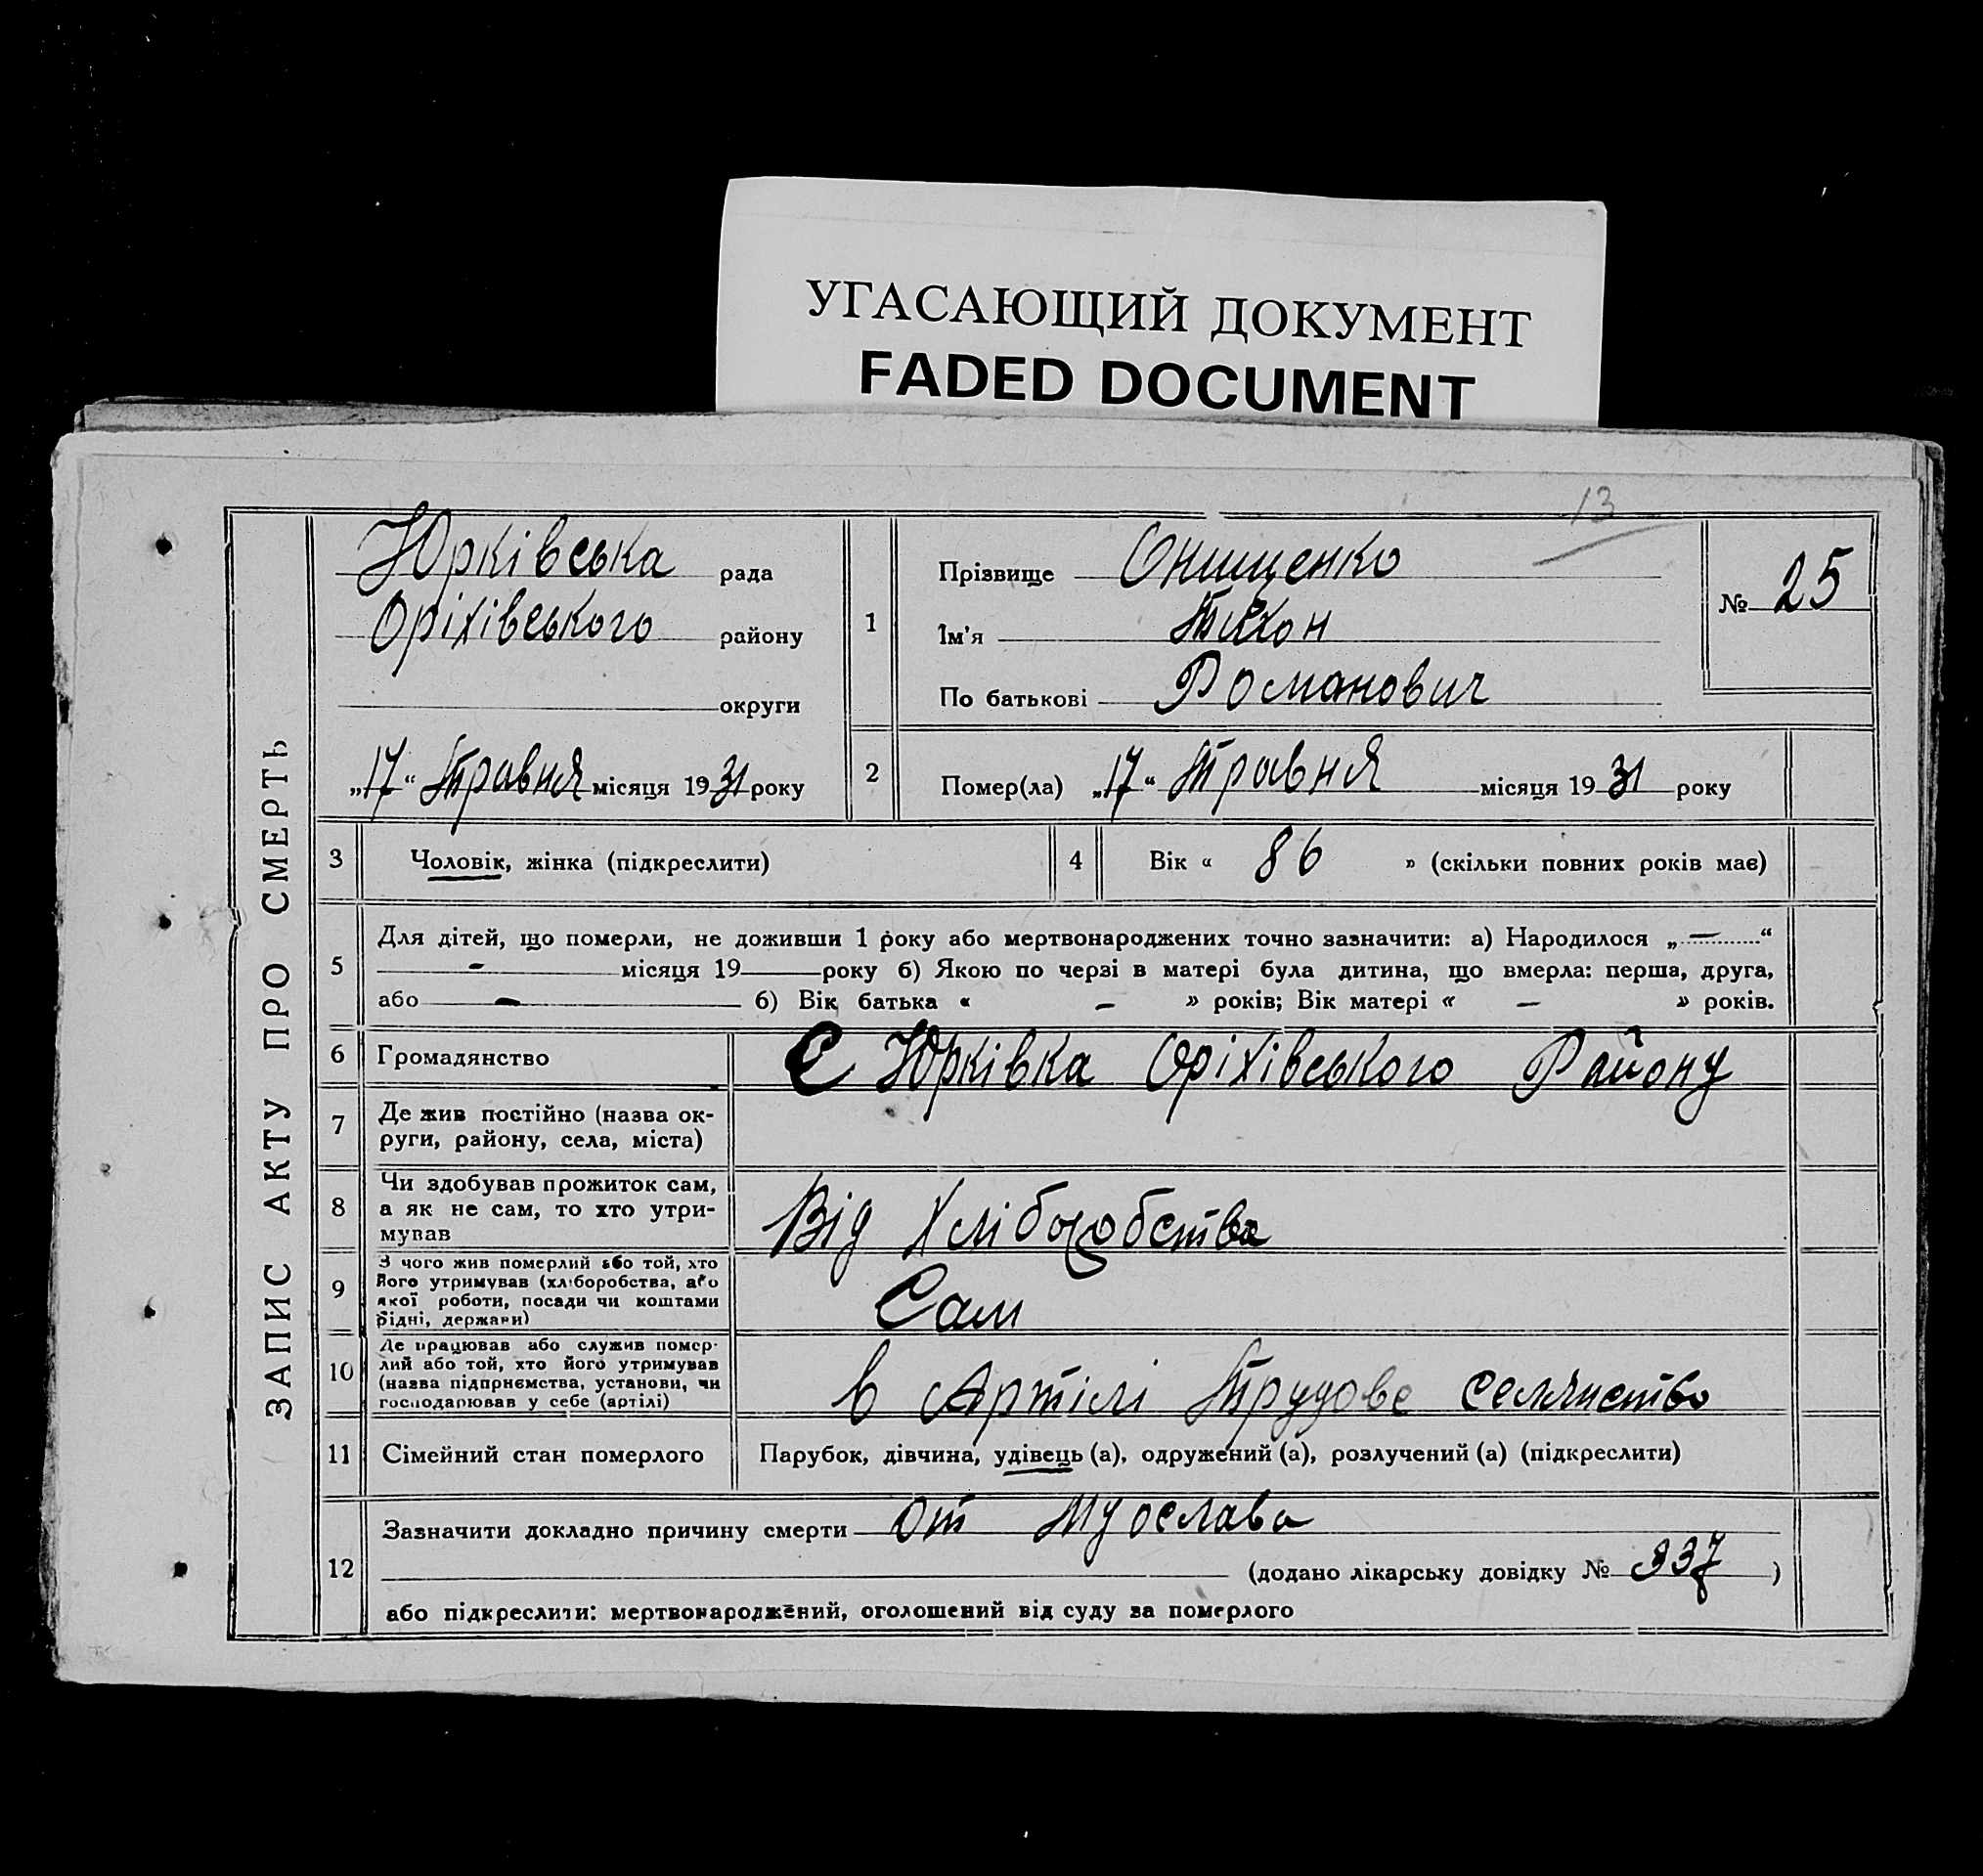 УГАСАЮЩИЙ ДОКУМЕНТ
FADED DOCUMENT
13
ЗАПИС АКТУ ПРО СМЕРТЬ
Юрківська рада
Оріхівського району
округи
„17“ Травня місяця 1931 року
1
Прізвище Онищенко
Ім'я Тихон
По батькові Романович
№ 25
2
Помер(ла) „17“ Травня місяця 1931 року
3 Чоловік, жінка (підкреслити)
4 Вік « 86 » (скільки повних років має)
5
Для дітей, що померли, не доживши 1 року або мертвонароджених точно зазначити: а) Народилося „—“
- місяця 19 року б) Якою по черзі в матері була дитина, що вмерла: перша, друга,
або - б) Вік батька « - » років; Вік матері « - » років.
6 Громадянство С Юрківка Оріхівського Району
7 Де жив постійно (назва ок-
руги, району, села, міста)
8 Чи здобував прожиток сам,
а як не сам, то хто утри-
мував
Від Хліборобства
9 З чого жив померлий або той, хто
його утримував (хліборобства, або
якої роботи, посади чи коштами
рідні, держави)
Сам
10 Де працював або служив помер-
лий або той, хто його утримував
(назва підприємства, установи, чи
господарював у себе (артілі)
в Артілі Трудове Селянство
11 Сімейний стан померлого Парубок, дівчина, удівець (а), одружений (а), розлучений (а) (підкреслити)
12
Зазначити докладно причину смерти От
(додано лікарську довідку № 337 )
або підкреслити: мертвонароджений, оголошений від суду за померлого